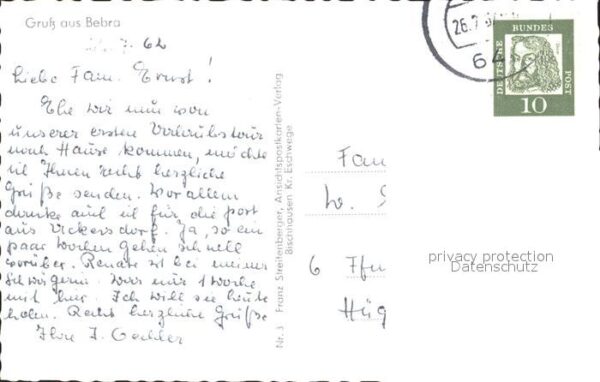 Gruß aus Bebra
.7.62
Liebe Fam. Ernst!
Ehe wir nun von
unserer ersten Urlaubstour
nach Hause kommen, möchte
ich Ihnen recht herzliche
Grüße senden. Vor allem
danke auch ich für die Post
aus Vickersdorf. Ja, so ein
paar Wochen gehen schnell
vorüber. Renate ist bei meiner
Schwägerin. War nur 1 Woche
mit hier. Ich will sie heute
holen. Recht herzliche Grüße
Ihre I.
Nr. 3 Franz Streitenberger, Ansichtspostkarten-Verlag
Bischhausen Kr. Eschwege
26.7
64
DEUTSCHE BUNDES POST
10
Fam
W.
6 Ffm
Hüg
privacy protection
Datenschutz